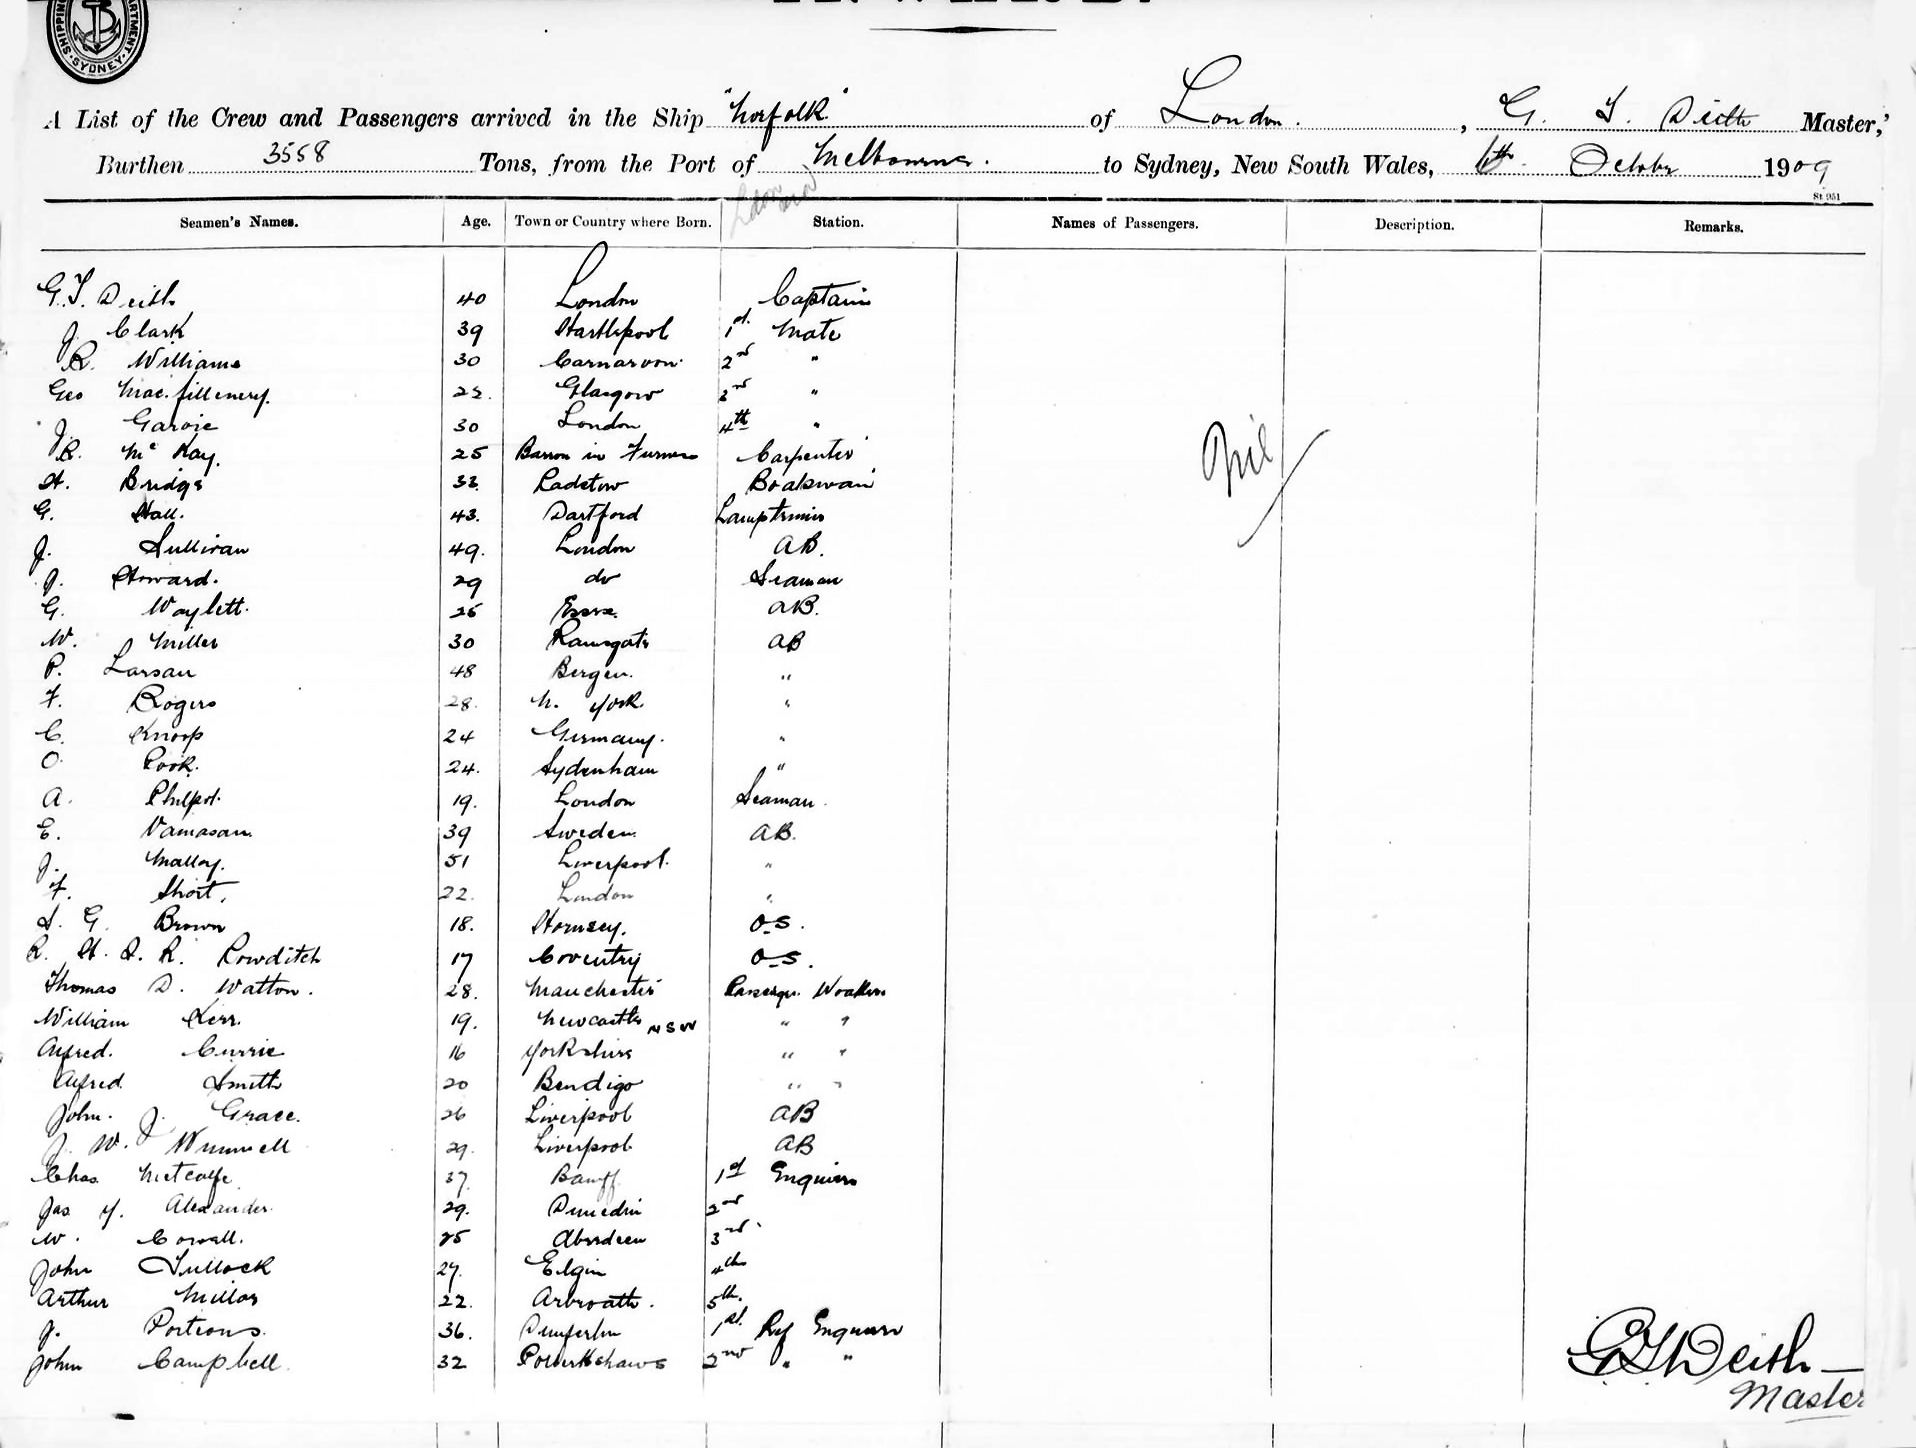 SHIPPING DEPARTMENT. SYDNEY.
A List of the Crew and Passengers arrived in the Ship "Norfolk" of London. , G. T. Deith Master,
Burthen 3558 Tons, from the Port of Melbourne. to Sydney, New South Wales, 6th October 1909
St 951
London
Seamen's Names. Age. Town or Country where Born. Station. Names of Passengers. Description. Remarks.
G. T. Deith 40 London Captain
J. Clark 39 Hartlepool 1st Mate
R. Williams 30 Carnarvon 2nd "
Geo 22. Glasgow "
J. Garvie 30 London 4th "
R. Mc Kay. 25 Barrow in Furness Carpenter
H. Bridge 33 Padstow Boatswain
G. Hall. 43. Dartford Lamptrimmer
J. Sullivan 49. London AB.
J. Howard. 29 do Seaman
G. Waylett. 25 Essex AB.
W. Miller 30 Ramsgate AB
P. Larsan 48 Bergen. "
F. Rogers 28. N. York. "
C. Knoop 24 Germany. "
O. Cook. 24. Sydenham "
A. Philpot. 19. London Seaman.
E. 39 Sweden. AB.
J. Malloy. 51 Liverpool. "
F. Short. 22. London "
S. G. Brown 18. Hornsey. O.S.
R. H. S. R. Rowditch 17 Coventry O.S.
Thomas D. Watton. 28. Manchester
William Kerr. 19. Newcastle N S W " "
Alfred. Currie 16 Yorkshire " "
Alfred Smith 20 Bendigo " "
John. J. Grace. 26 Liverpool AB
J. W. 29. Liverpool AB
Chas. Metcalfe 37. Banff. 1st Engineer
Jas Y. Alexander. 29. Dunedin 2nd
W. 25 Aberdeen 3rd
John Tullock 27. Elgin 4th
Arthur Millar 22. Arbroath. 5th.
J. Porteous. 36. 1st. Ref Engineer
John Campbell. 32 2nd " "
Nil
G T Deith
Master